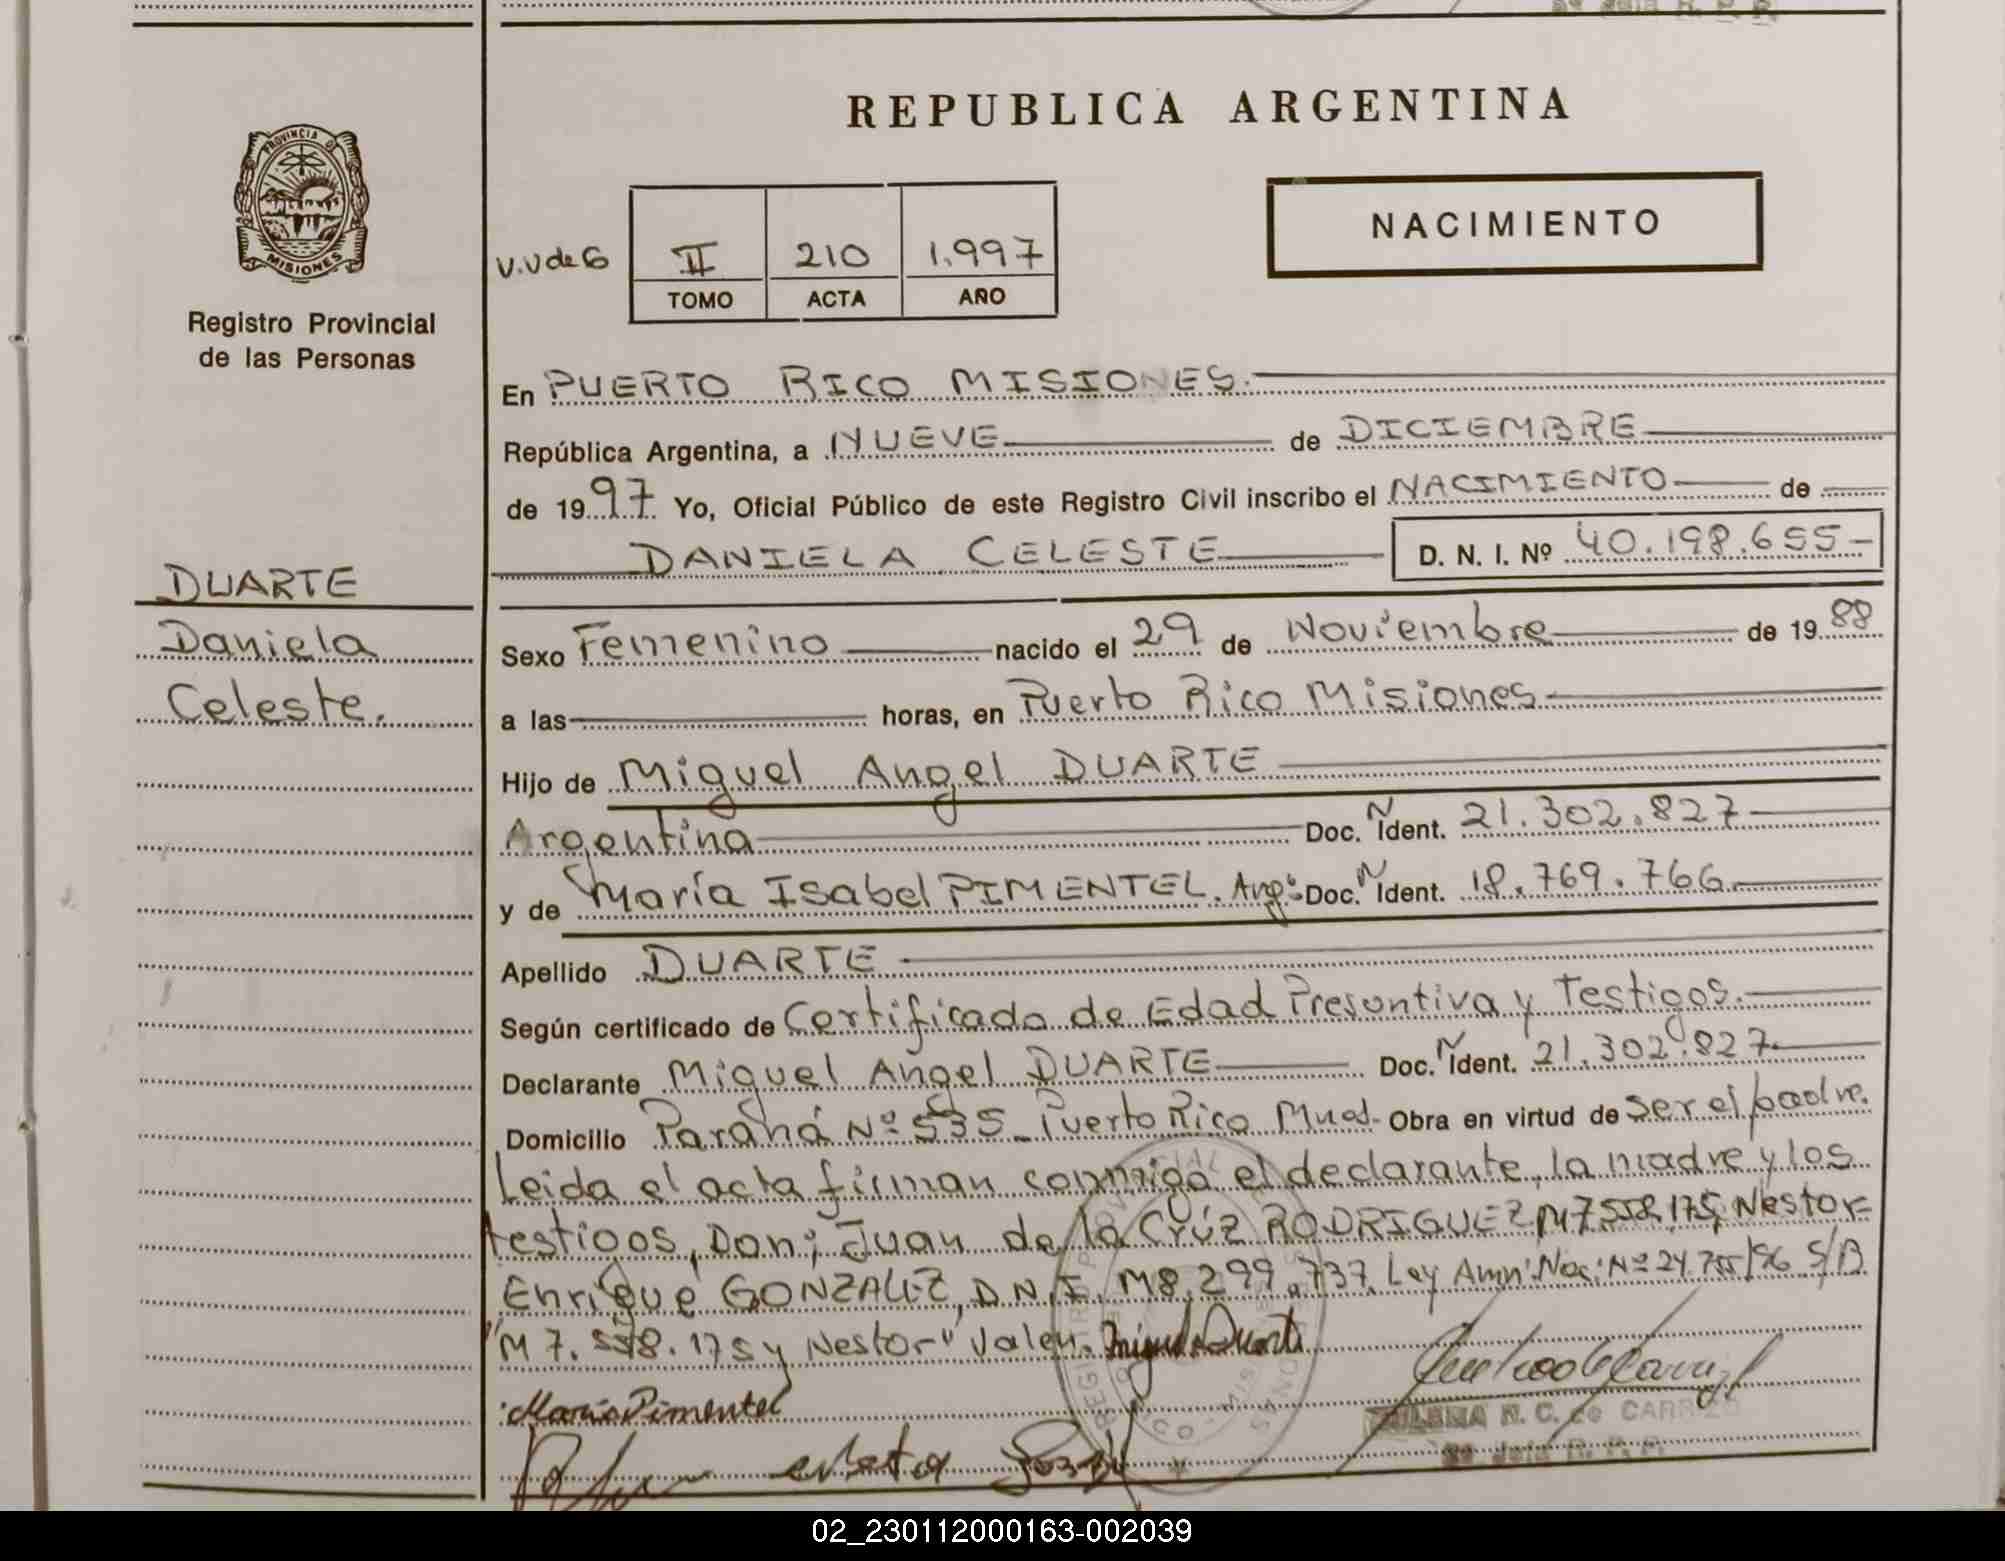 REPUBLICA ARGENTINA
PROVINCIA DE
MISIONES
Registro Provincial
de las Personas
V.V de G
II 210 1.997
TOMO ACTA AÑO
NACIMIENTO
En PUERTO RICO MISIONES.
República Argentina, a NUEVE de DICIEMBRE
de 1997 Yo, Oficial Público de este Registro Civil inscribo el NACIMIENTO de
DANIELA CELESTE D. N. I. Nº 40.198.655-
DUARTE
Daniela
Celeste.
Sexo Femenino nacido el 29 de Noviembre de 1988
a las horas, en Puerto Rico Misiones
Hijo de Miguel Angel DUARTE
Argentina Doc. Ident. 21.302.827
y de María Isabel PIMENTEL. Arg: Doc. Ident. 18.769.766
Apellido DUARTE
Según certificado de Certificado de Edad Presuntiva y Testigos.
Declarante Miguel Angel DUARTE Doc. Ident. 21.302.827
Domicilio Paraná Nº 535 Puerto Rico Mnes. Obra en virtud de ser el padre.
Leida el acta firman conmigo el declarante, la madre y los
testigos, Don; Juan de la Crúz RODRIGUEZ M7.558.175, Nestor
Enrique GONZALEZ, D.N.I. M8.299.737. Ley Amn. Nac. Nº 24.755/96 S/B
"M 7.558.175 y Nestor" Valen. Miguel Duarte
Maria Pimentel
N. C. de CARRIZO
02_230112000163-002039